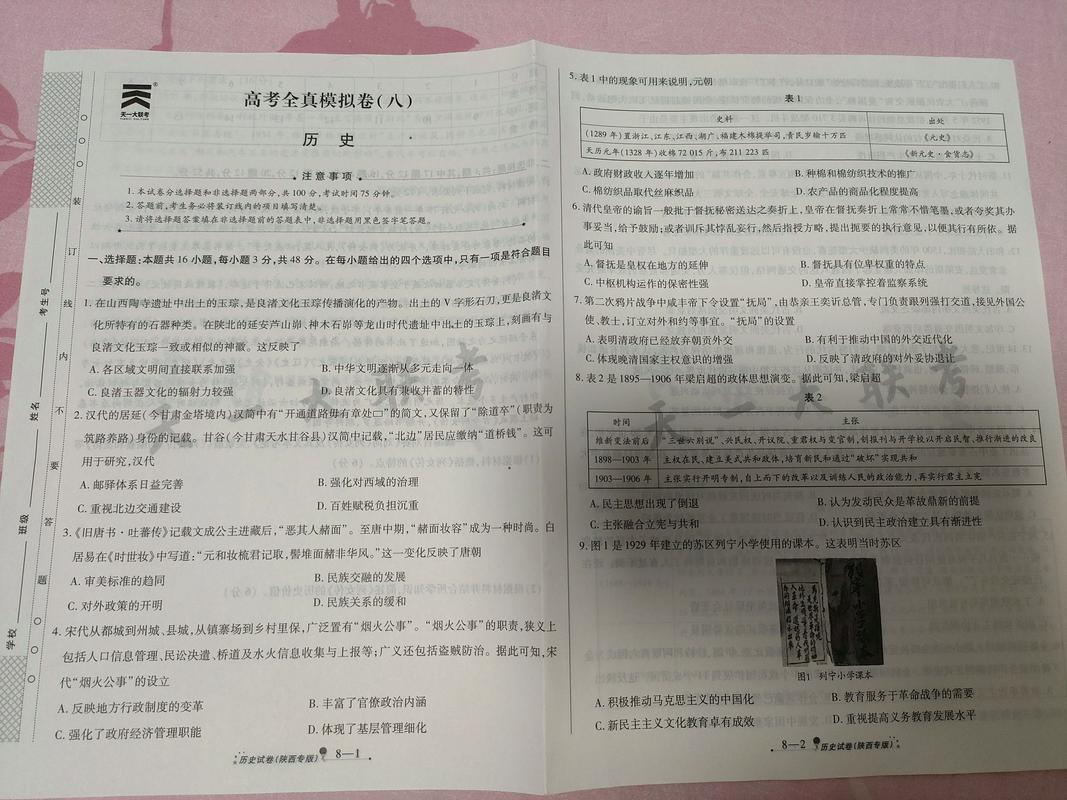 天一大联考
高考全真模拟卷(八)
历 史
·注意事项·
1. 本试卷分选择题和非选择题两部分,共 100 分,考试时间 75 分钟。
2. 答题前,考生务必将装订线内的项目填写清楚。
3. 请将选择题答案填在非选择题前的答题表中,非选择题用黑色签字笔答题。
一、选择题:本题共 16 小题,每小题 3 分,共 48 分。在每小题给出的四个选项中,只有一项是符合题目
要求的。
1. 在山西陶寺遗址中出土的玉琮,是良渚文化玉琮传播演化的产物。出土的 V 字形石刀,更是良渚文
化所特有的石器种类。在陕北的延安芦山峁、神木石峁等龙山时代遗址中出土的玉琮上,刻画有与
良渚文化玉琮一致或相似的神徽。这反映了
A. 各区域文明间直接联系加强
B. 中华文明逐渐从多元走向一体
C. 良渚玉器文化的辐射力较强
D. 良渚文化具有兼收并蓄的特性
2. 汉代的居延(今甘肃金塔境内)汉简中有“开通道路毋有章处□”的简文,又保留了“除道卒”(职责为
筑路养路)身份的记载。甘谷(今甘肃天水甘谷县)汉简中记载,“北边”居民应缴纳“道桥钱”。这可
用于研究,汉代
A. 邮驿体系日益完善
B. 强化对西域的治理
C. 重视北边交通建设
D. 百姓赋税负担沉重
3. 《旧唐书·吐蕃传》记载文成公主进藏后,“恶其人赭面”。至唐中期,“赭面妆容”成为一种时尚。白
居易在《时世妆》中写道:“元和妆梳君记取,髻堆面赭非华风。”这一变化反映了唐朝
A. 审美标准的趋同
B. 民族交融的发展
C. 对外政策的开明
D. 民族关系的缓和
4. 宋代从都城到州城、县城,从镇寨场到乡村里保,广泛置有“烟火公事”。“烟火公事”的职责,狭义上
包括人口信息管理、民讼决遣、桥道及水火信息收集与上报等;广义还包括盗贼防治。据此可知,宋
代“烟火公事”的设立
A. 反映地方行政制度的变革
B. 丰富了官僚政治内涵
C. 强化了政府经济管理职能
D. 体现了基层管理细化
历史试卷(陕西专版) 8—1
5. 表 1 中的现象可用来说明,元朝
表 1
史料 出处
(1289 年)置浙江、江东、江西、湖广、福建木棉提举司,责民岁输十万匹 《元史》
天历元年(1328 年)收棉 72 015 斤,布 211 223 匹 《新元史·食货志》
A. 政府财政收入逐年增加
B. 种棉和棉纺织技术的推广
C. 棉纺织品取代丝麻织品
D. 农产品的商品化程度提高
6. 清代皇帝的谕旨一般批于督抚秘密送达之奏折上,皇帝在督抚奏折上常常不惜笔墨,或者夸奖其办
事妥当,给予鼓励;或者训斥其悖乱妄行,然后指授方略,提出扼要的执行意见,以便其行有所依。据
此可知
A. 督抚是皇权在地方的延伸
B. 督抚具有位卑权重的特点
C. 中枢机构运作的保密性强
D. 皇帝直接掌控着监察系统
7. 第二次鸦片战争中咸丰帝下令设置“抚局”,由恭亲王奕䜣总管,专门负责跟列强打交道,接见外国公
使、教士,订立对外和约等事宜。“抚局”的设置
A. 表明清政府已经放弃朝贡外交
B. 有利于推动中国的外交近代化
C. 体现晚清国家主权意识的增强
D. 反映了清政府的对外妥协退让
8. 表 2 是 1895—1906 年梁启超的政体思想演变。据此可知,梁启超
表 2
时间 主张
维新变法前后 “三世六别说”、兴民权、开议院、重君权与变官制,创报刊与开学校以开启民智、推行渐进的改良
1898—1903 年 主权在民、建立美式共和政体,培育新民和通过“破坏”实现共和
1903—1906 年 主张实行开明专制,自上而下的改革以及训练人民的政治能力,再实行君主立宪
A. 民主思想出现了倒退
B. 认为发动民众是革故鼎新的前提
C. 主张融合立宪与共和
D. 认识到民主政治建立具有渐进性
9. 图 1 是 1929 年建立的苏区列宁小学使用的课本。这表明当时苏区
图1 列宁小学课本
A. 积极推动马克思主义的中国化
B. 教育服务于革命战争的需要
C. 新民主主义文化教育卓有成效
D. 重视提高义务教育发展水平
8—2 历史试卷(陕西专版)
学校 班级 姓名 考生号
装 订 线 内 不 要 答 题
天一大联考
天一大联考